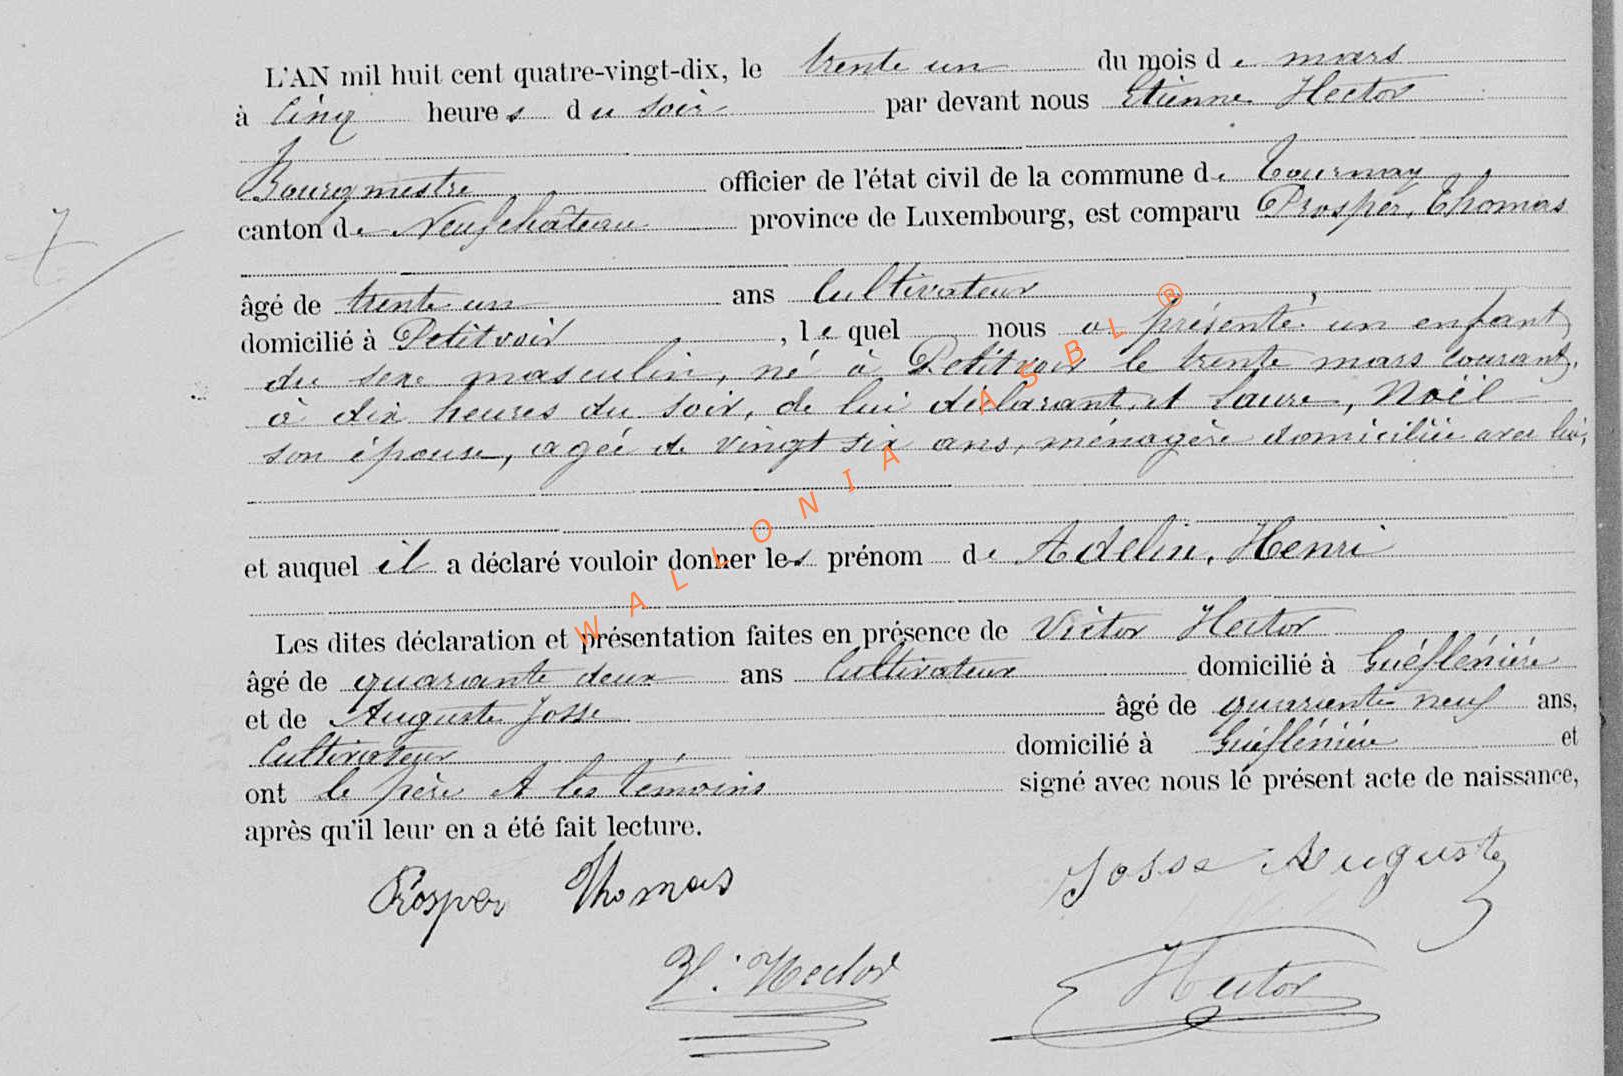 L'AN mil huit cent quatre-vingt-dix, le trente un du mois de mars
à Cinq heures du soir par devant nous Etienne Hector
Bourgmestre officier de l'état civil de la commune de Tournay
canton de Neufchâteau province de Luxembourg, est comparu Prosper, Thomas
âgé de trente un ans Cultivateur
domicilié à Petitvoir, lequel nous a présenté un enfant
du sexe masculin, né à Petitvoir le trente mars courant,
à dix heures du soir, de lui déclarant et Laure, Noël
son épouse, agée de vingt six ans, ménagère domiciliée avec lui,
et auquel il a déclaré vouloir donner les prénom de Adelin, Henri
Les dites déclaration et présentation faites en présence de Victor Hector
âgé de quarante deux ans Cultivateur domicilié à Gréflénière
et de Auguste Josse âgé de quarante neuf ans,
Cultivateur domicilié à et
ont le père et les témoins signé avec nous le présent acte de naissance,
après qu'il leur en a été fait lecture.
Prosper Thomas
Josse Auguste
V. Hector
Hector
7
WALLONIA ASBL ®